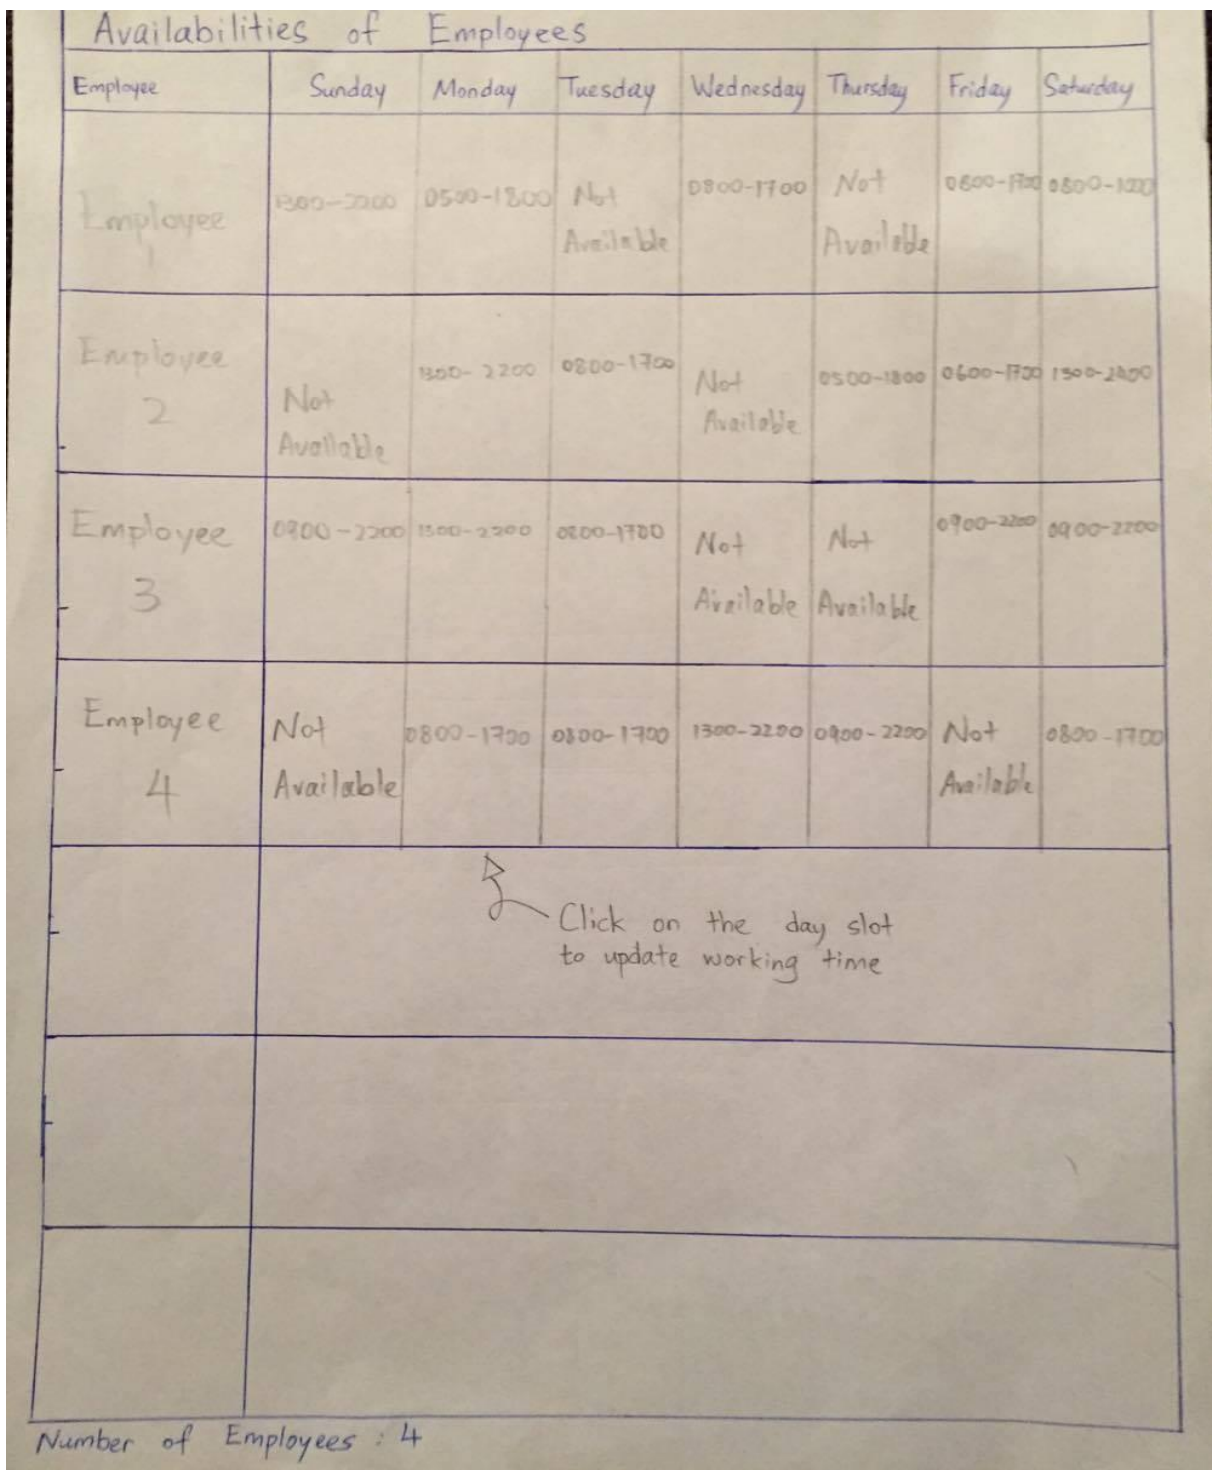 Availabilities of Employees
Employee Sunday Monday Tuesday Wednesday Thursday Friday Saturday
Employee 1
1300-2200 0500-1800 Not Available 0800-1700 Not Available 0600-1700
Employee 2
Not Available 1300-2200 0800-1700 Not Available 0500-1800 0600-1700
Employee 3
0900-2200 1300-2200 0800-1700 Not Available Not Available 0900-2200 0900-2200
Employee 4
Not Available 0800-1700 0800-1700 1300-2200 0900-2200 Not Available 0800-1700
Click on the day slot
to update working time
Number of Employees : 4